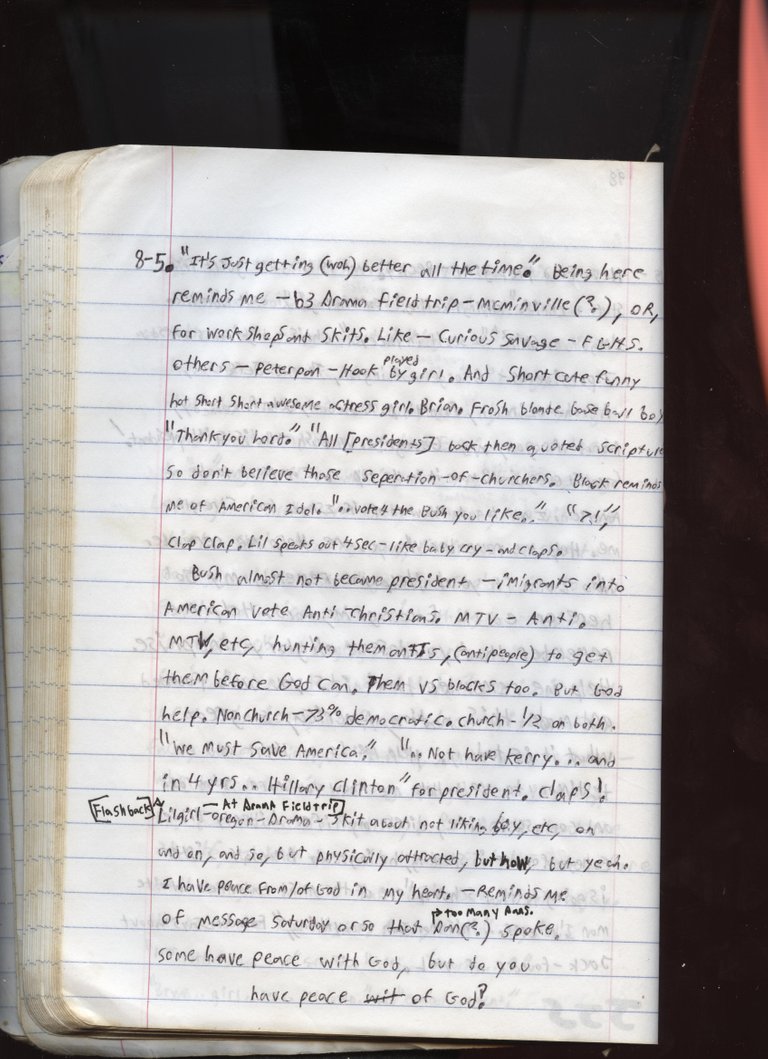 98
8-5. "It's Just getting (woh) better all the time." Being here
reminds me - b3 Drama Fieldtrip - mcminville (?.), OR,
for workshops and Skits. Like - Curious Savage - F.G.H.S.
played
others - Peterpan - Hook by girl. And Short cute funny
hot short short awesome actress girl. Brian. Frosh blonde base ball boy
"Thank you Lord." "All [presidents] back then quoted Scripture
so don't believe those Seperation-of-churchers. Black reminds
me of American Idol. "..vote 4 the Bush you like.." "?!",
Clap Clap. Lil speaks out 4 sec - like baby cry - and claps.
Bush almost not became president - imigrants into
American vote Anti-Christians. MTV - Anti.
MTV, etc, hunting them antis, (antipeople) to get
them before God can. Them VS blacks too. But God
help. Nonchurch - 73% democratic. church - 1/2 on both.
"We must Save America." "..Not have Kerry... and
in 4 yrs.. Hillary Clinton" for president. Claps!
[Flashback] - At Drama Fieldtrip]
Lilgirl - oregon - Drama - Skit about not liking boy, etc, on
and on, and so, but physically attracted, but how, but yeah.
I have peace from/of God in my heart. - Reminds me
too many Dans.
of message Saturday or so that Dan(?.) spoke.
some have peace with God, but do you
have peace wit of God?